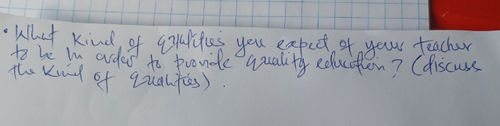 • What kind of qualities you expect of your teacher
to be in order to provide quality education? (discuss
the kind of qualities).